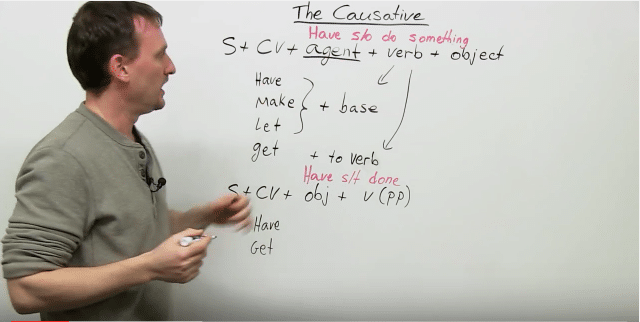 The Causative
Have s/o do something
S + CV + agent + verb + object
Have
Make
Let
+ base
get + to verb
Have s/t done
S + CV + obj + v (pp)
Have
Get